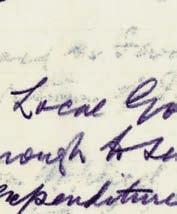 Local Go
rough to su
expenditure